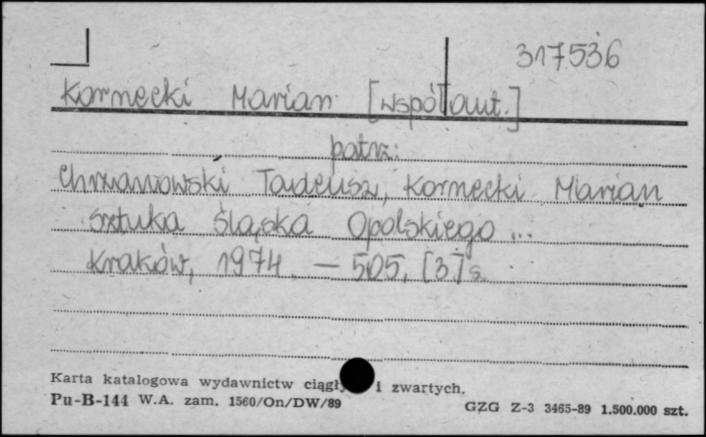 317536
Kornecki Marian [współaut.]
patrz:
Chrzanowski Tadeusz, Kornecki Marian
Sztuka Śląska Opolskiego ...
Kraków, 1974. – 505, [3] s.
Karta katalogowa wydawnictw i zwartych.
Pu-B-144 W.A. zam. 1560/On/DW/89
GZG Z-3 3465-89 1.500.000 szt.